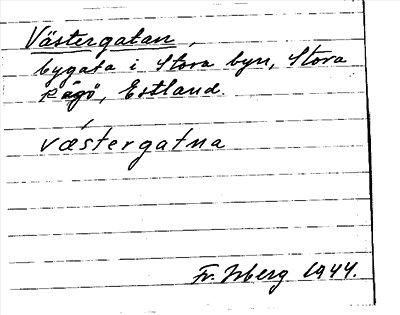 Västergatan,
bygata i Stora byn, Stora
Rågö, Estland.
væ´stergatna
Fr. Isberg 1944.